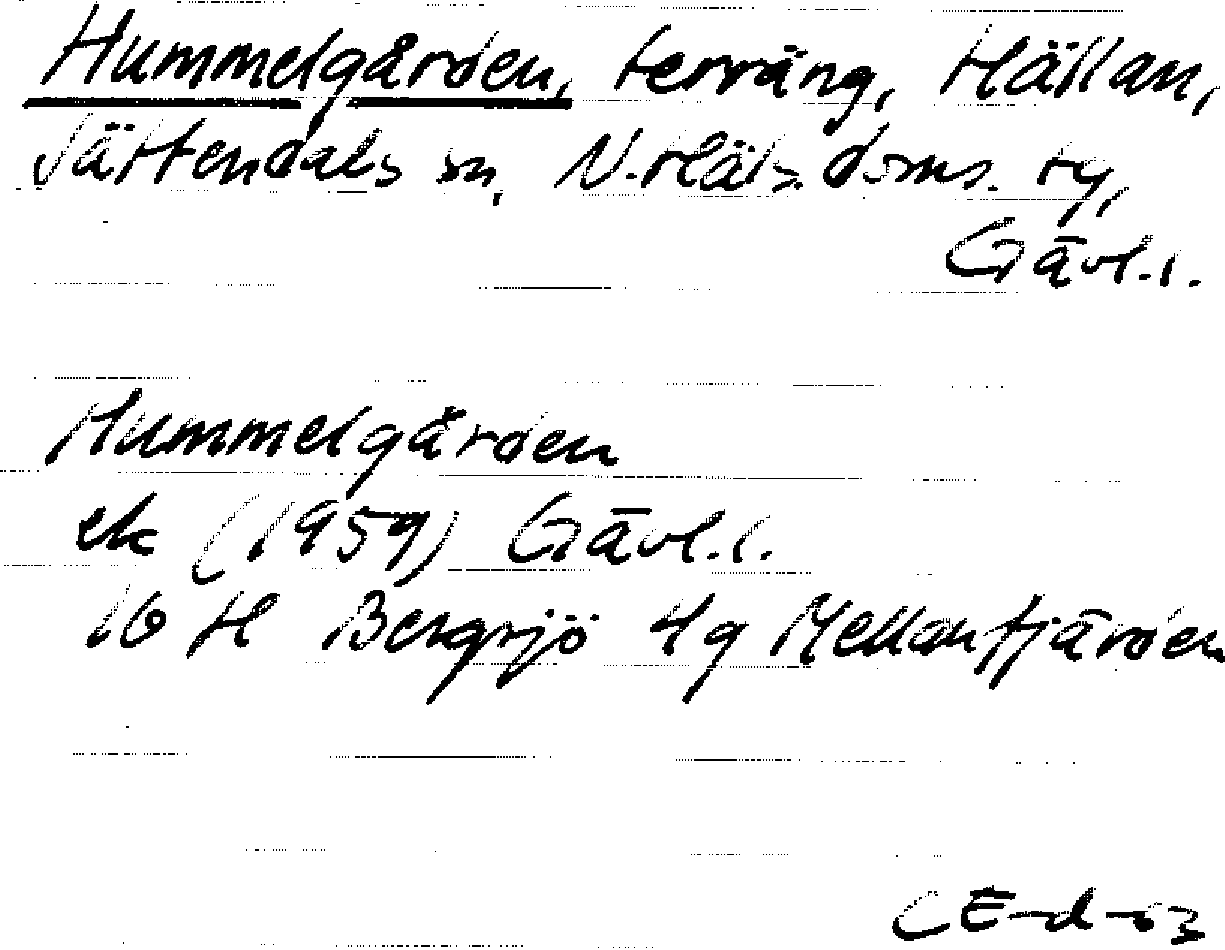 Hummelgården, terräng, Hällan,
Jättendals sn, N.Häls. doms. tg,
Gävl.l.
Hummelgården
ek (1959) Gävl.l.
16 H Bergsjö 4g Mellanfjärden
CE-d-63